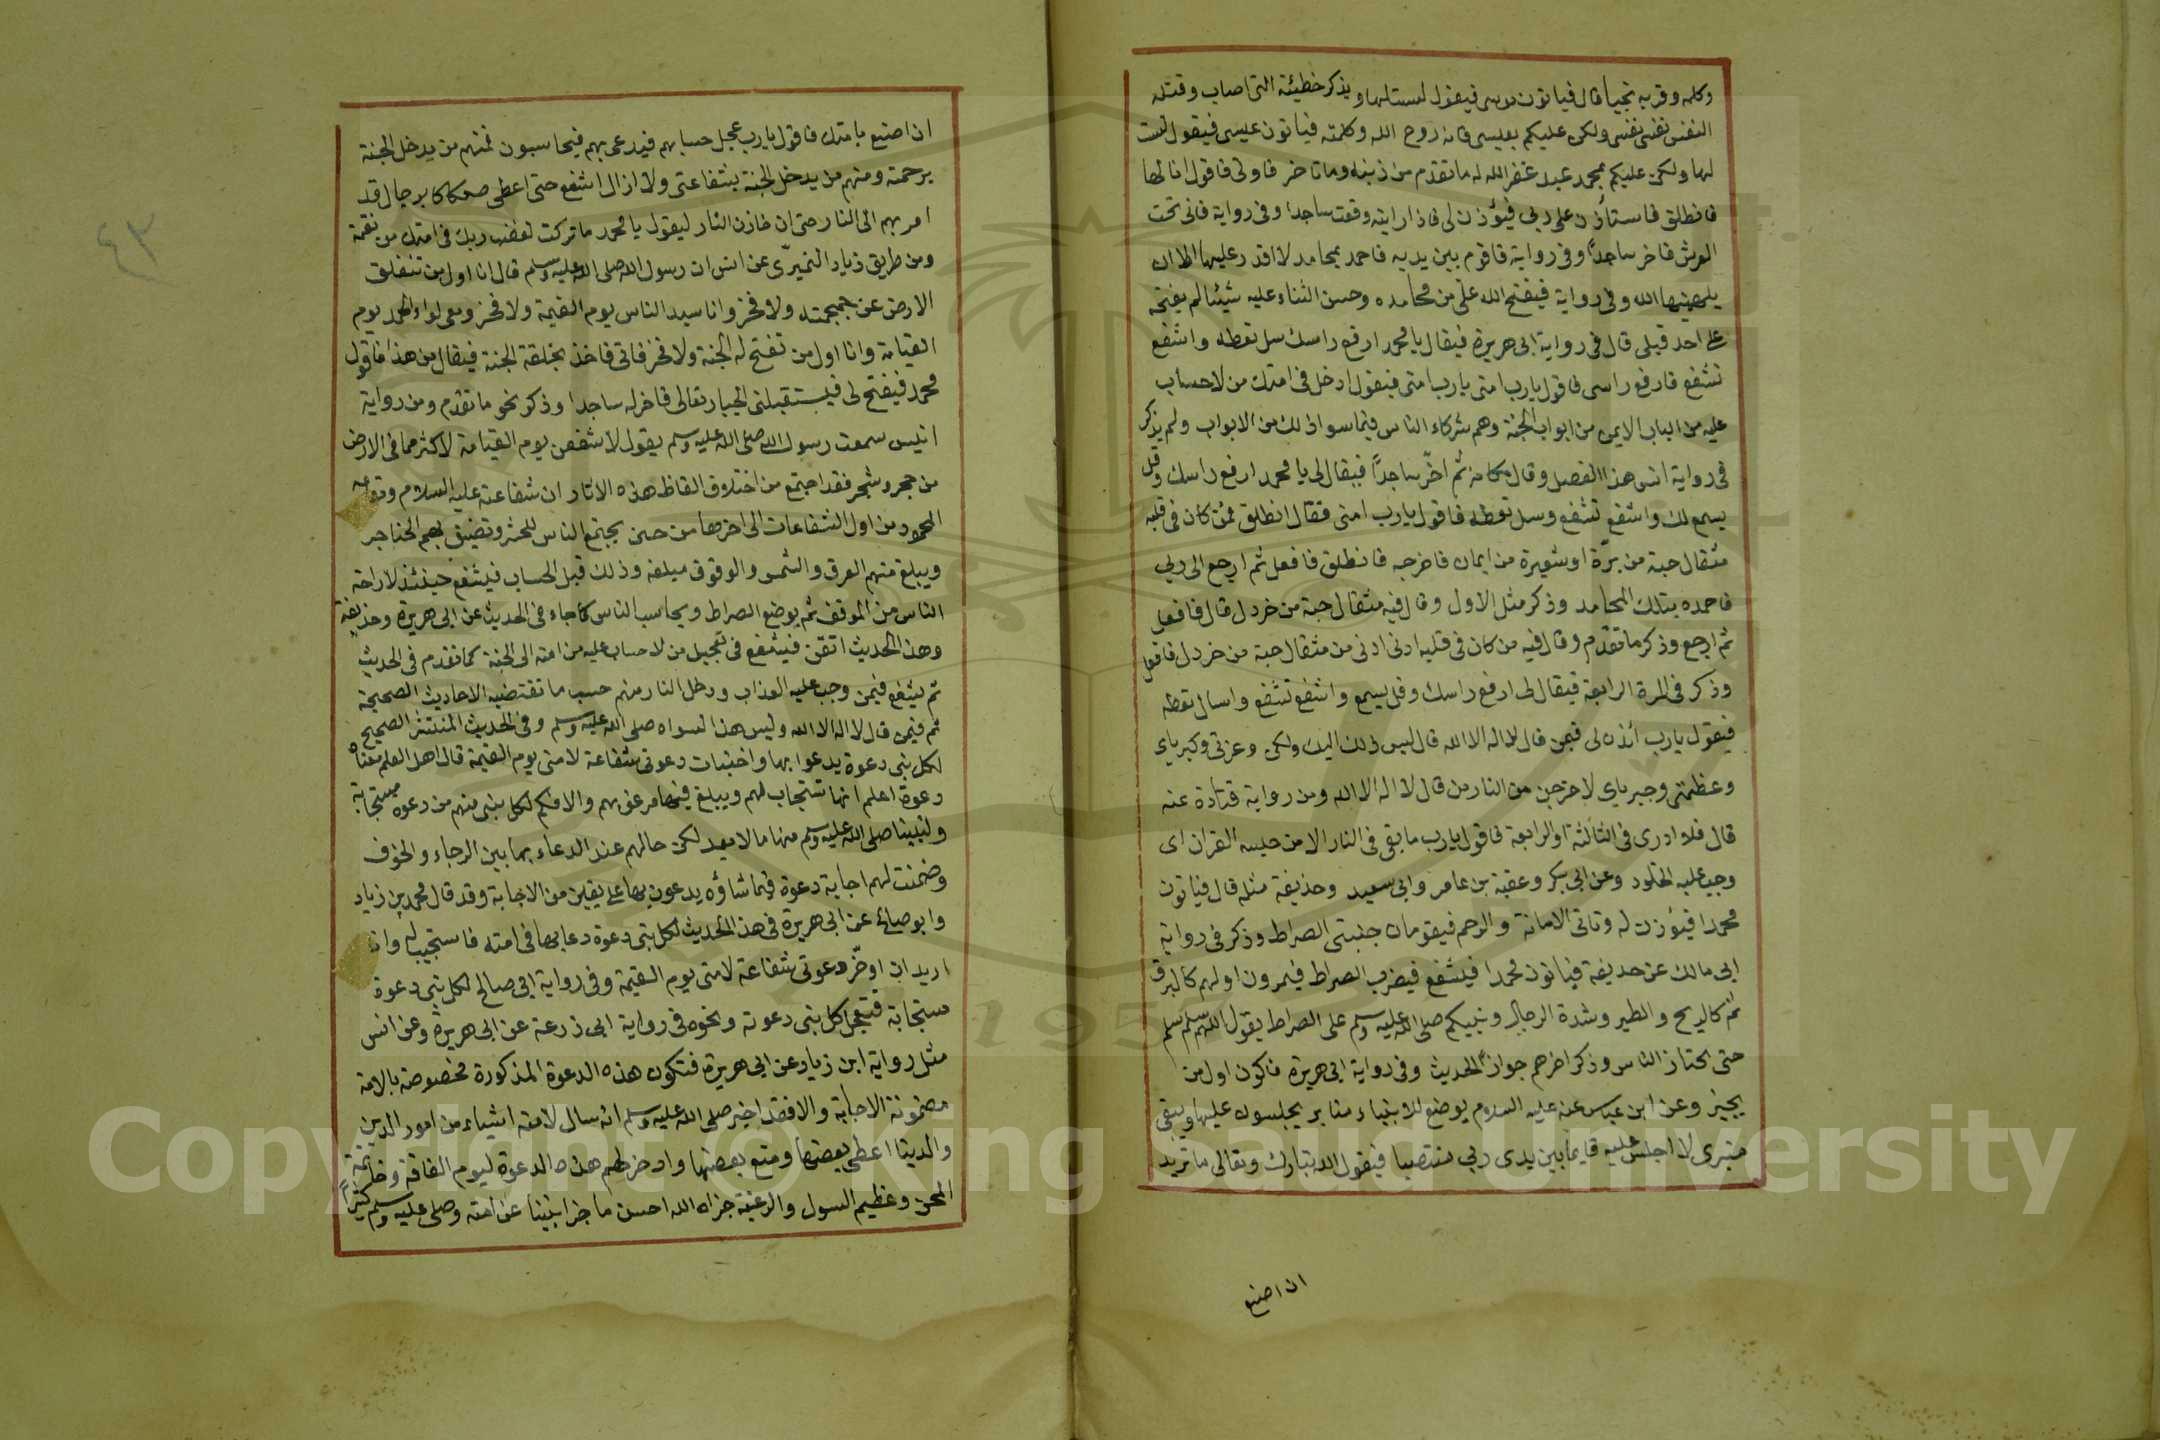 وكلمه وقربه نجيا قال فياتون موسى فيقول لست لها ويذكر خطيئته التي اصاب وقتله
النفس نفسى نفسى ولكن عليكم بعيسى فانه روح الله وكلمته فياتون عيسى فيقول لست
لها ولكن عليكم بمحمد عبد غفر الله له ما تقدم من ذنبه وما تاخر فاوتى فاقول انا لها
فانطلق فاستأذن على ربى فيؤذن لى فاذا رايته وقعت ساجدا وفى رواية فاتى تحت
العرش فاخر ساجدا وفى رواية فاقوم بين يديه فاحمده بمحامد لا اقدر عليها الا ان
يلهمنيها الله وفى رواية فيفتح الله على من محامده وحسن الثناء عليه شيئا لم يفتحه
على احد قبلى قال فى رواية ابى هريرة فيقال يا محمد ارفع راسك سل تعطه واشفع
تشفع فارفع راسى فاقول يارب امتى يارب امتى فيقول ادخل فى امتك من لا حساب
عليه من الباب الايمن من ابواب الجنة وهم شركاء الناس فيما سوا ذلك من الابواب ولم يذكر
فى رواية انس هذا الفصل وقال مكانه ثم اخر ساجدا فيقال لى يا محمد ارفع راسك وقل
يسمع لك واشفع تشفع وسل تعطه فاقول يارب امتى فقال انطلق فمن كان فى قلبه
مثقال حبة من برة او شعيرة من ايمان فاخرجه فانطلق فافعل ثم ارجع الى ربى
فاحمده بتلك المحامد وذكر مثل الاول وقال فيه مثقال حبة من خردل قال فافعل
ثم ارجع وذكر ما تقدم وقال فيه من كان فى قلبه ادنى ادنى من مثقال حبة من خردل فافعل
وذكر فى المرة الرابعة فيقال لى ارفع راسك وقل يسمع واشفع تشفع واسال تعطه
فيقول يارب أئذن لى فيمن قال لا اله الا الله قال ليس ذلك اليك ولكن وعزتى وكبرياى
وعظمتى وجبرياى لاخرجن من النار من قال لا اله الا الله ومن رواية قتادة عنه
قال فلا ادرى فى الثالثة او الرابعة فاقول يارب ما بقى فى النار الا من حبسه القران اى
وجب عليه الخلود وعن ابى بكر وعقبة بن عامر وابى سعيد وحذيفة مثله قال فياتون
محمدا فيؤذن له وتاتى الامانة والرحم فيقومان جنبتى الصراط وذكر فى رواية
ابى مالك عن حذيفة فياتون محمدا فيشفع فيضرب الصراط فيمرون اولهم كالبرق
ثم كالريح والطير وشدة الرجال ونبيكم صلى الله عليه وسلم على الصراط يقول اللهم سلم سلم
حتى يجتاز الناس وذكر اخرهم جوازا الحديث وفى رواية ابى هريرة فاكون اول من
يجيز وعن ابن عباس عنه عليه السلام يوضع للانبياء منابر يجلسون عليها ويبقى
منبرى لا اجلس عليه قايما بين يدى ربى منتصبا فيقول الله تبارك وتعالى ما تريد
ان اصنع
ان اصنع بامتك فاقول يارب عجل حسابهم فيدعى بهم فيحاسبون فمنهم من يدخل الجنة
برحمته ومنهم من يدخل الجنة بشفاعتى ولا ازال اشفع حتى اعطى صكاكا برجال قد
امر بهم الى النار حتى ان خازن النار ليقول يا محمد ما تركت لغضب ربك فى امتك من نقمة
ومن طريق زياد النميرى عن انس ان رسول الله صلى الله عليه وسلم قال انا اول من تنفلق
الارض عن جمجمته ولا فخر وانا سيد الناس يوم القيمة ولا فخر ومعى لواء الحمد يوم
القيامة وانا اول من تفتح له الجنة ولا فخر فاتى فاخذ بحلقة الجنة فيقال من هذا فاقول
محمد فيفتح لى فيستقبلنى الجبار تعالى فاخر له ساجدا وذكر نحو ما تقدم ومن رواية
انيس سمعت رسول الله صلى الله عليه وسلم يقول لاشفعن يوم القيامة لاكثر مما فى الارض
من حجر وشجر فقد اجتمع من اختلاف الفاظ هذه الاثار ان شفاعته عليه السلام ومقامه
المحمود من اول الشفاعات الى اخرها من حين يجتمع الناس للحشر وتضيق بهم الحناجر
ويبلغ منهم العرق والشمس والوقوف مبلغه وذلك قبل الحساب فيشفع حينئذ لاراحة
الناس من الموقف ثم يوضع الصراط ويحاسب الناس كما جاء فى الحديث عن ابى هريرة وحذيفة
وهذا الحديث اتقن فيشفع فى تعجيل من لا حساب عليه من امته الى الجنة كما تقدم فى الحديث
ثم يشفع فيمن وجب عليه العذاب ودخل النار منهم حسب ما تقتضيه الاحاديث الصحيحة
ثم فيمن قال لا اله الا الله وليس هذا لسواه صلى الله عليه وسلم وفى الحديث المنتشر الصحيح
لكل نبى دعوة يدعوا بها واختبات دعوتى شفاعة لامتى يوم القيمة قال اهل العلم معناه
دعوة اعلم انها تستجاب لهم ويبلغ فيها مرغوبهم والا فكم لكل نبى منهم من دعوة مستجابة
ولنبينا صلى الله عليه وسلم منها ما لا يعد لكن حالهم عند الدعاء بها بين الرجاء والخوف
وضمنت لهم اجابة دعوة فيما شاؤه يدعون بها على يقين من الاجابة وقد قال محمد بن زياد
وابو صالح عن ابى هريرة فى هذا الحديث لكل نبى دعوة دعا بها فى امته فاستجيب له وانا
اريد ان اوخر دعوتى شفاعة لامتى يوم القيمة وفى رواية ابى صالح لكل نبى دعوة
مستجابة فتعجل كل نبى دعوته ونحوه فى رواية ابى زرعة عن ابى هريرة وعن انس
مثل رواية ابن زياد عن ابى هريرة فتكون هذه الدعوة المذكورة مخصوصة بالامة
مضمونة الاجابة والا فقد اخبر صلى الله عليه وسلم انه سال لامته اشياء من امور الدين
والدنيا اعطى بعضها ومنع بعضها وادخر لهم هذه الدعوة ليوم الفاقة وخاتمة
المحن وعظيم السول والرغبة جزاه الله احسن ما جزا نبينا عن امته وصلى عليه وسلم كثيرا
٤٣
Copyright © King Saud University
1957